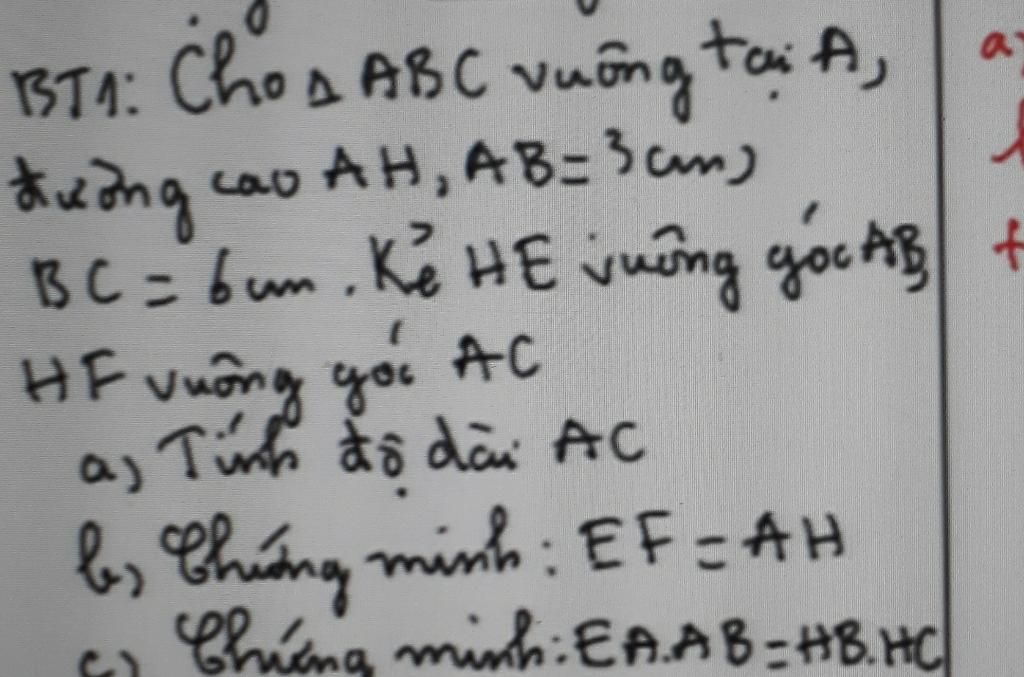 BT1: Cho Δ ABC vuông tại A,
đường cao AH, AB = 3 cm,
BC = 6 cm. Kẻ HE vuông góc AB,
HF vuông góc AC
a) Tính độ dài AC
b) Chứng minh: EF = AH
c) Chứng minh: EA.AB = HB.HC
a)